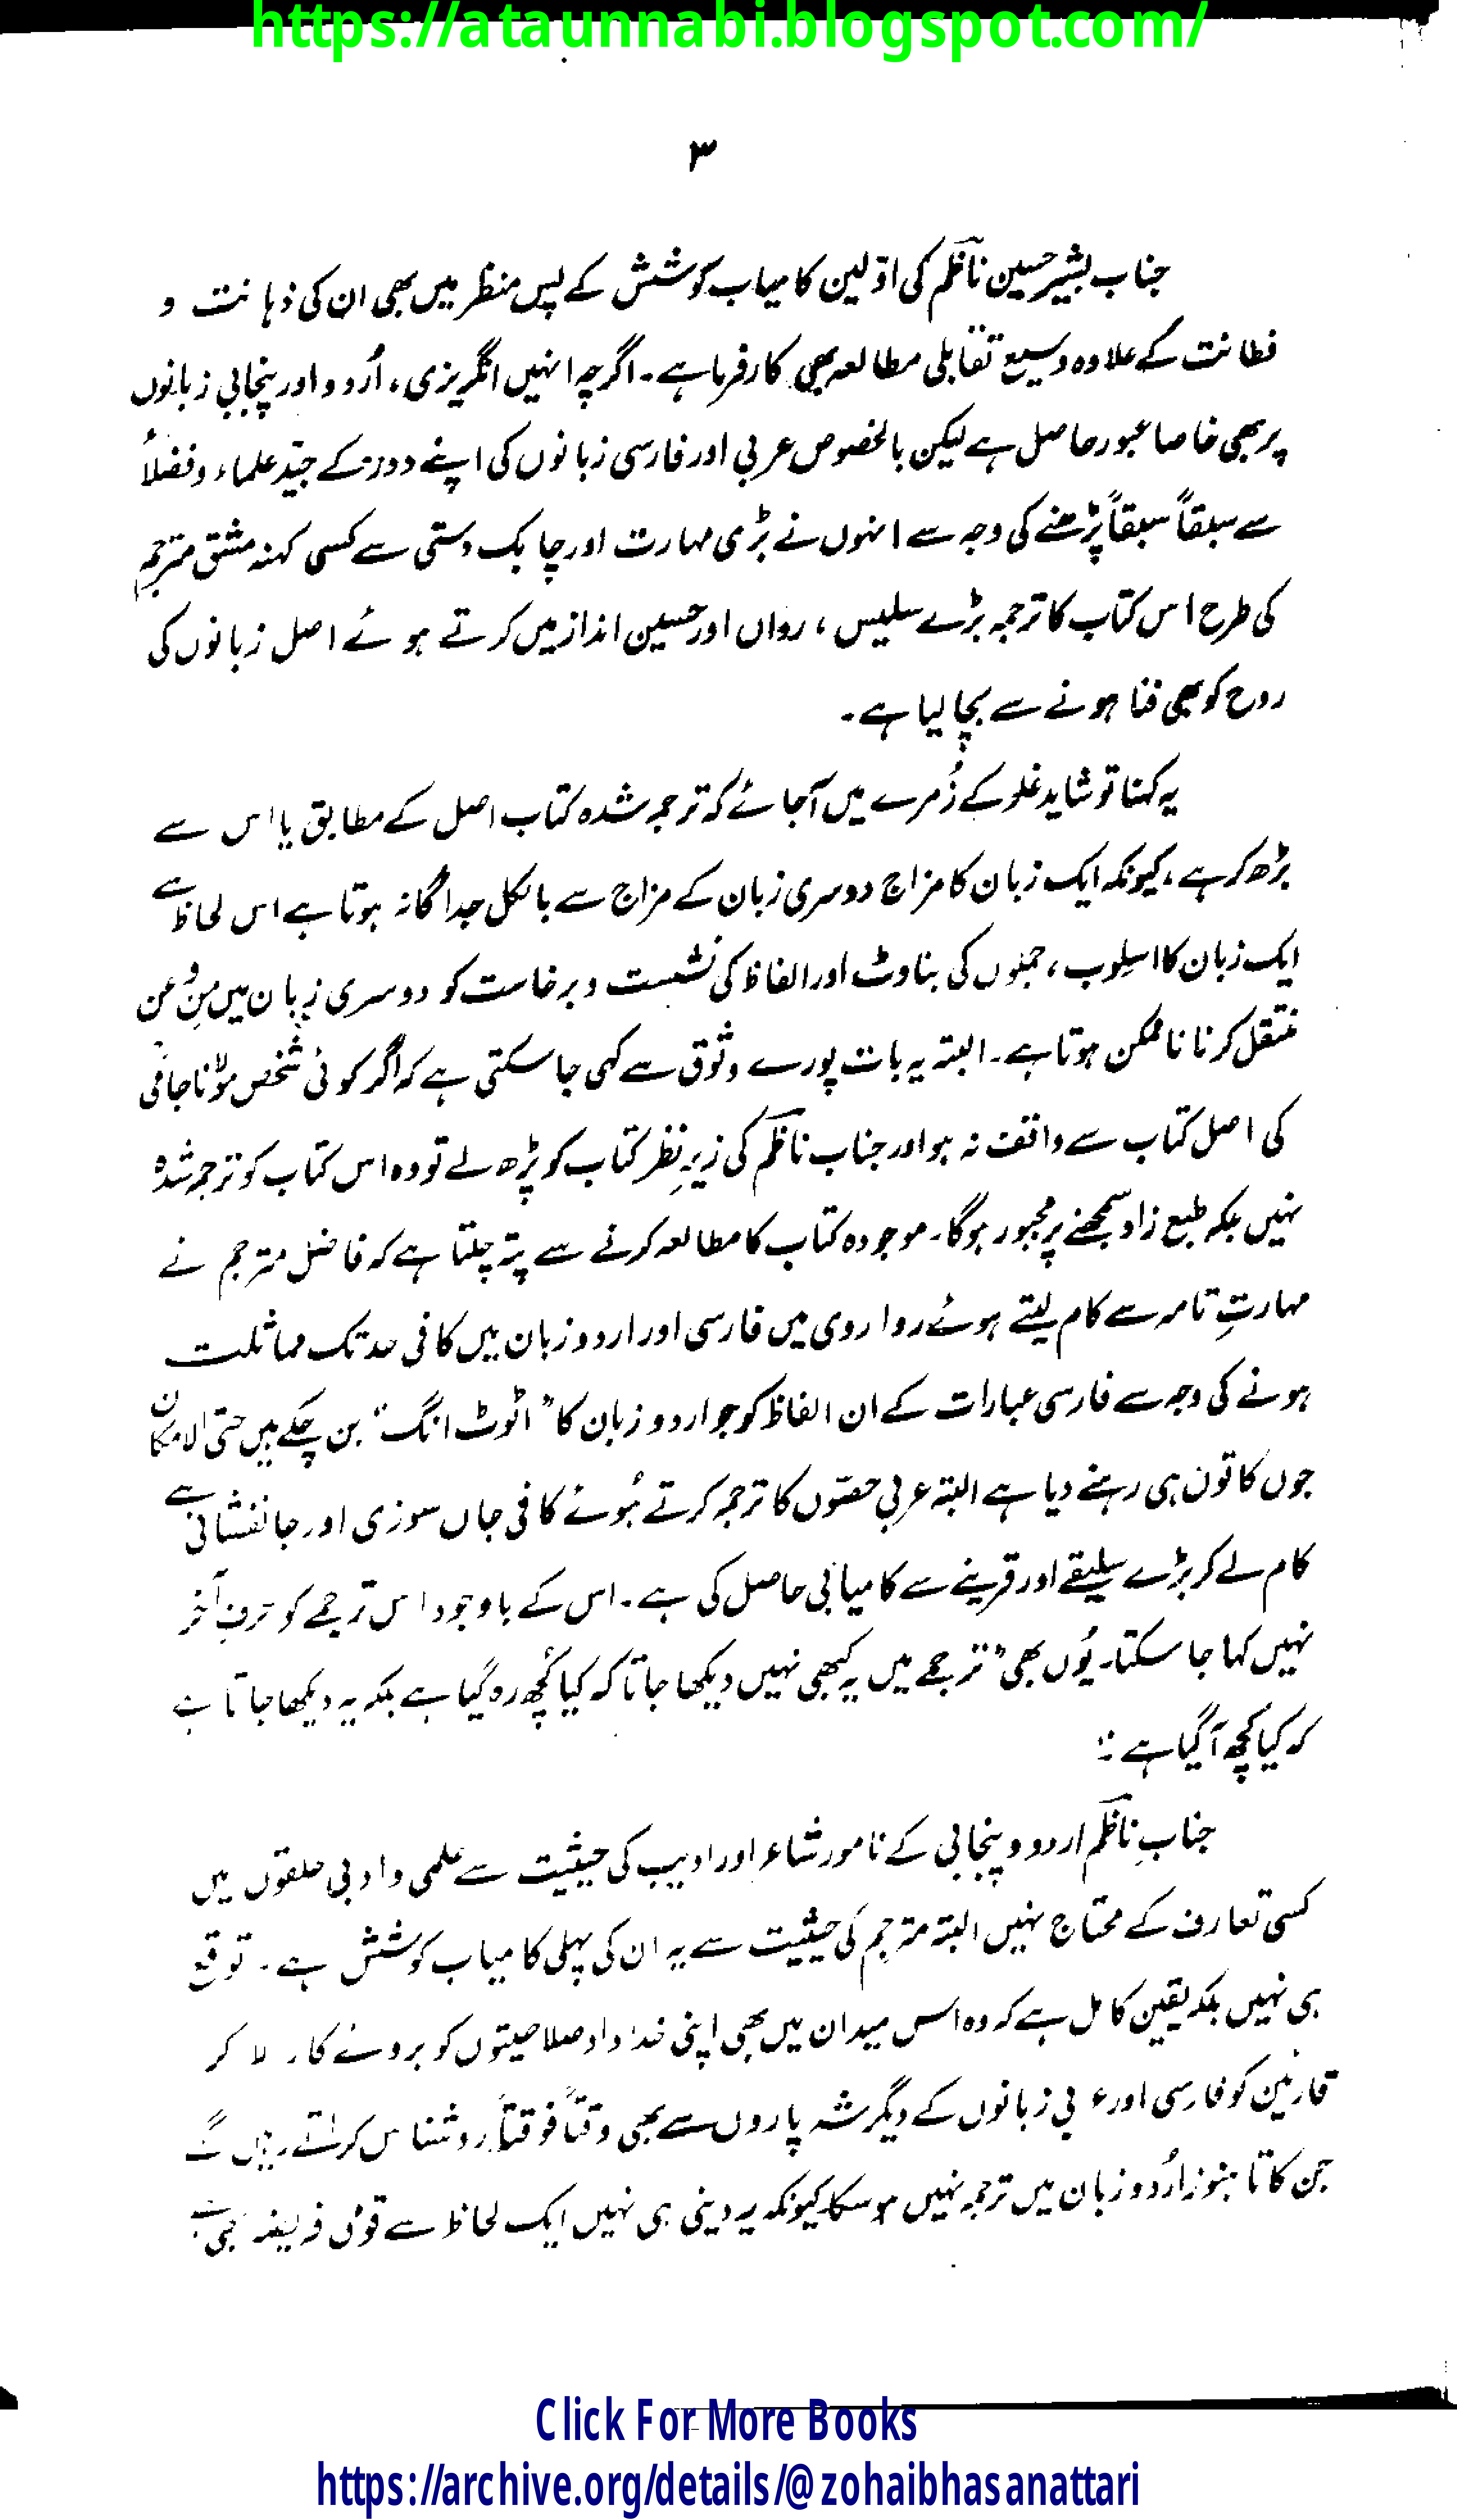 https://ataunnabi.blogspot.com/
۳
جناب بشیر حسین ناظم کی اوّلین کامیاب کوشش کے پس منظر میں بھی ان کی ذہانت و
فطانت کے علاوہ وسیع تقابلی مطالعہ بھی کارفرما ہے۔ اگرچہ انہیں انگریزی، اُردو اور پنجابی زبانوں
پر بھی خاصا عبور حاصل ہے لیکن بالخصوص عربی اور فارسی زبانوں کی اپنے دور کے جیّد علماء و فضلأ
سے سبقاً سبقاً پڑھنے کی وجہ سے انہوں نے بڑی مہارت اور چابک دستی سے کسی کہنہ مشق مترجم
کی طرح اس کتاب کا ترجمہ بڑے سلیس، رواں اور حسین انداز میں کرتے ہوئے اصل زبانوں کی
روح کو بھی فنا ہونے سے بچا لیا ہے۔
یہ کہنا تو شاید غلو کے زُمرے میں آجائے کہ ترجمہ شدہ کتاب اصل کے مطابق یا اس سے
بڑھ کر ہے، کیونکہ ایک زبان کا مزاج دوسری زبان کے مزاج سے بالکل جداگانہ ہوتا ہے اس لحاظ سے
ایک زبان کا اسلوب، جملوں کی بناوٹ اور الفاظ کی نشست و برخاست کو دوسری زبان میں مِن و عن
منتقل کرنا ناممکن ہوتا ہے۔ البتہ یہ بات پورے وثوق سے کہی جا سکتی ہے کہ اگر کوئی شخص مولانا جامی
کی اصل کتاب سے واقف نہ ہو اور جناب ناظم کی زیرِ نظر کتاب کو پڑھ لے تو وہ اس کتاب کو ترجمہ شدہ
نہیں بلکہ طبع زاد سمجھنے پر مجبور ہوگا۔ موجودہ کتاب کا مطالعہ کرنے سے پتہ چلتا ہے کہ فاضل مترجم نے
مہارتِ تامہ سے کام لیتے ہوئے روا روی میں فارسی اور اردو زبان میں کافی حد تک مماثلت
ہونے کی وجہ سے فارسی عبارات کے ان الفاظ کو جو اردو زبان کا ”اٹوٹ انگ“ بن چکے ہیں حتی الامکان
جوں کا توں ہی رہنے دیا ہے البتہ عربی حصّوں کا ترجمہ کرتے ہُوئے کافی جاں سوزی اور جانفشانی سے
کام لے کر بڑے سلیقے اور قرینے سے کامیابی حاصل کی ہے۔ اس کے باوجود اس ترجمے کو حرفِ آخر
نہیں کہا جا سکتا۔ یُوں بھی ”ترجمے میں یہ کبھی نہیں دیکھا جاتا کہ کیا کُچھ رہ گیا ہے بلکہ یہ دیکھا جاتا ہے
کہ کیا کچھ آگیا ہے“
جنابِ ناظم اردو و پنجابی کے نامور شاعر اور ادیب کی حیثیت سے علمی و ادبی حلقوں میں
کسی تعارف کے محتاج نہیں البتہ مترجم کی حیثیت سے یہ ان کی پہلی کامیاب کوشش ہے۔ توقع
ہی نہیں بلکہ یقین کامل ہے کہ وہ اس میدان میں بھی اپنی خداداد صلاحیتوں کو بروئے کار لا کر
قارئین کو فارسی اور عربی زبانوں کے دیگر شہ پاروں سے بھی وقتاً فوقتاً روشناس کراتے رہیں گے
جن کا تا ہنوز اُردو زبان میں ترجمہ نہیں ہو سکا کیونکہ یہ دینی ہی نہیں ایک لحاظ سے قومی فریضہ بھی ہے
Click For More Books
https://archive.org/details/@zohaibhasanattari